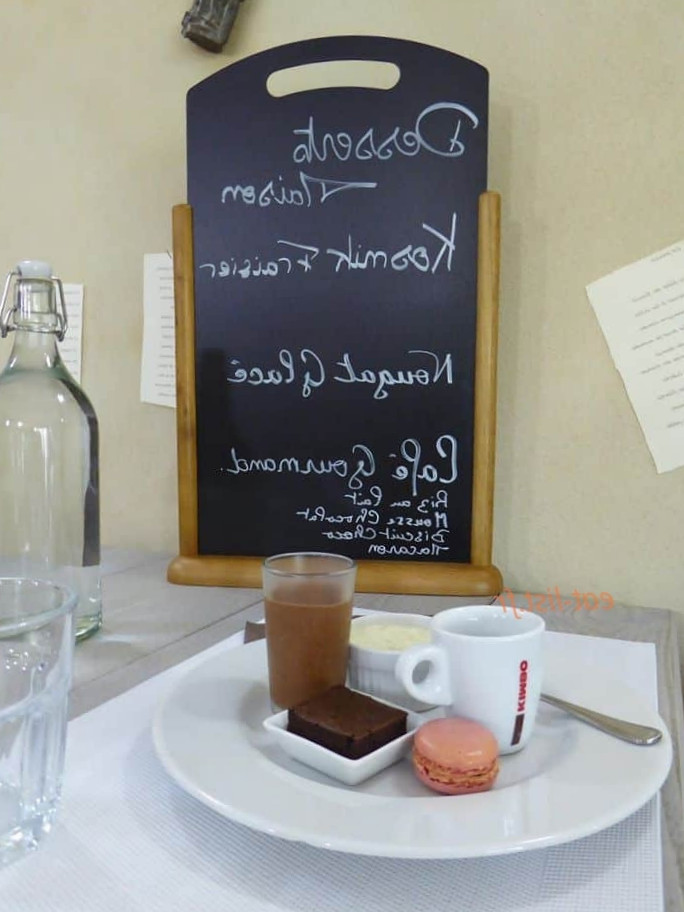 Desserts
Maison
Kosmik Fraisier
Nougat Glacé
Café Gourmand.
Riz au lait
Mousse Chocolat
Biscuit Choco
Macaron
eat-list.fr
KIMBO